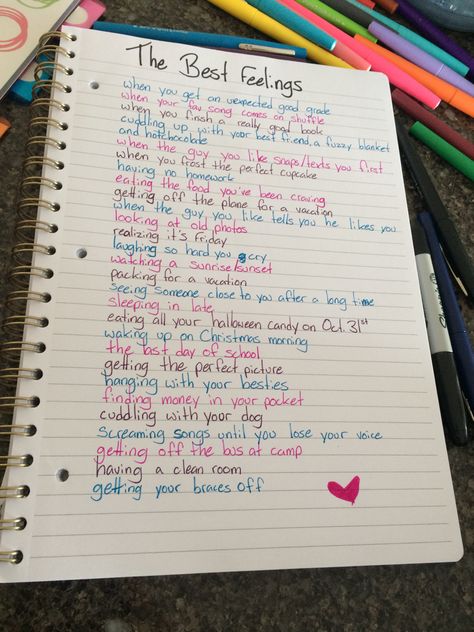 The Best Feelings
when you get an unexpected good grade
when your fav song comes on shuffle
when you finish a really good book
cuddling up with your best friend, a fuzzy blanket
and hotchocolate
when the guy you like snaps/texts you first
when you frost the perfect cupcake
having no homework
eating the food you've been craving
getting off the plane for a vacation
when the guy you like tells you he likes you
looking at old photos
realizing it's Friday
laughing so hard you cry
watching a sunrise/sunset
packing for a vacation
seeing someone close to you after a long time
sleeping in late
eating all your halloween candy on Oct. 31st
waking up on Christmas morning
the last day of school
getting the perfect picture
hanging with your besties
finding money in your pocket
cuddling with your dog
screaming songs until you lose your voice
getting off the bus at camp
having a clean room
getting your braces off